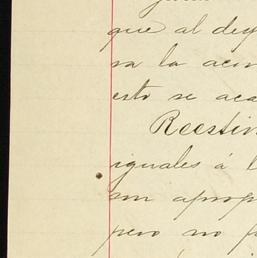 que al dey
va la acon
esto se aca
Reestin
iguales á l
son aprop
pero no p